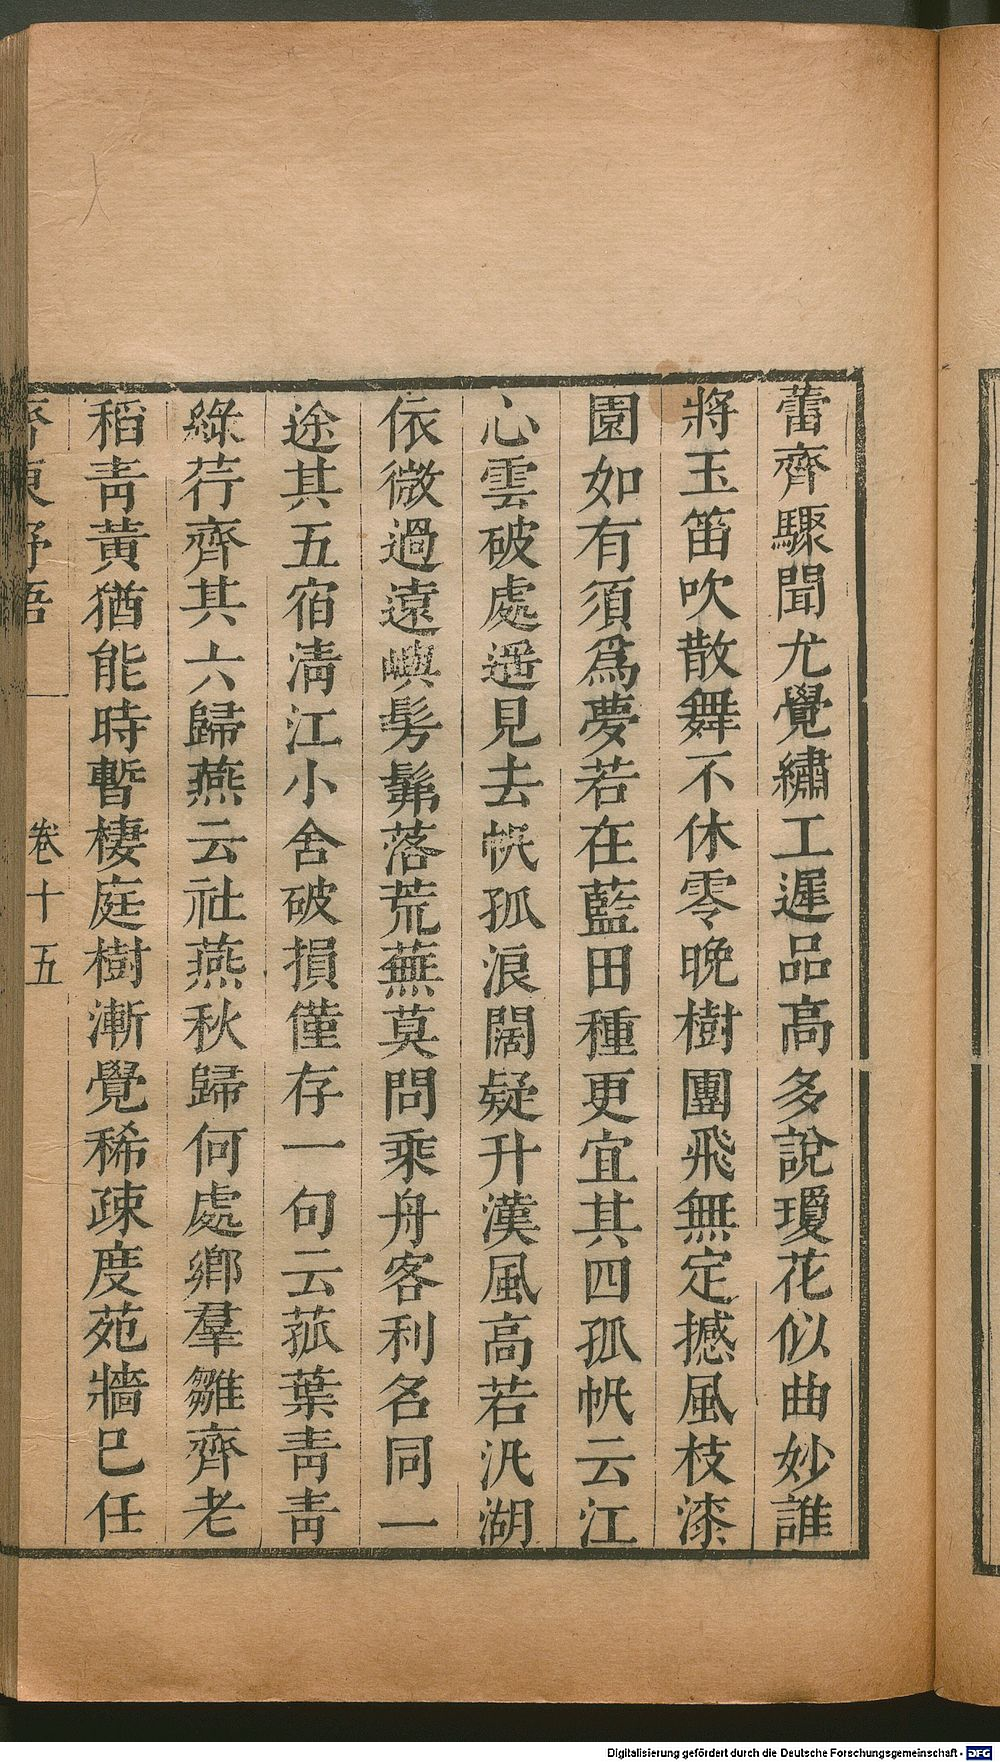 蕾齊驟聞尤覺繡工遲品高多說瓊花似曲妙誰
將玉笛吹散舞不休零晚樹團飛無定撼風枝漆
園如有須爲夢若在藍田種更宜其四孤帆云江
心雲破處遥見去帆孤浪闊疑升漢風高若汎湖
依微過遠嶼髣髴落荒蕪莫問乘舟客利名同一
途其五宿淸江小舍破損僅存一句云菰葉靑靑
綠荇齊其六歸燕云社燕秋歸何處鄉羣雛齊老
稻靑黃猶能時暫棲庭樹漸覺稀疎度苑牆已任
齊東野語
卷十五
Digitalisierung gefördert durch die Deutsche Forschungsgemeinschaft - DFG